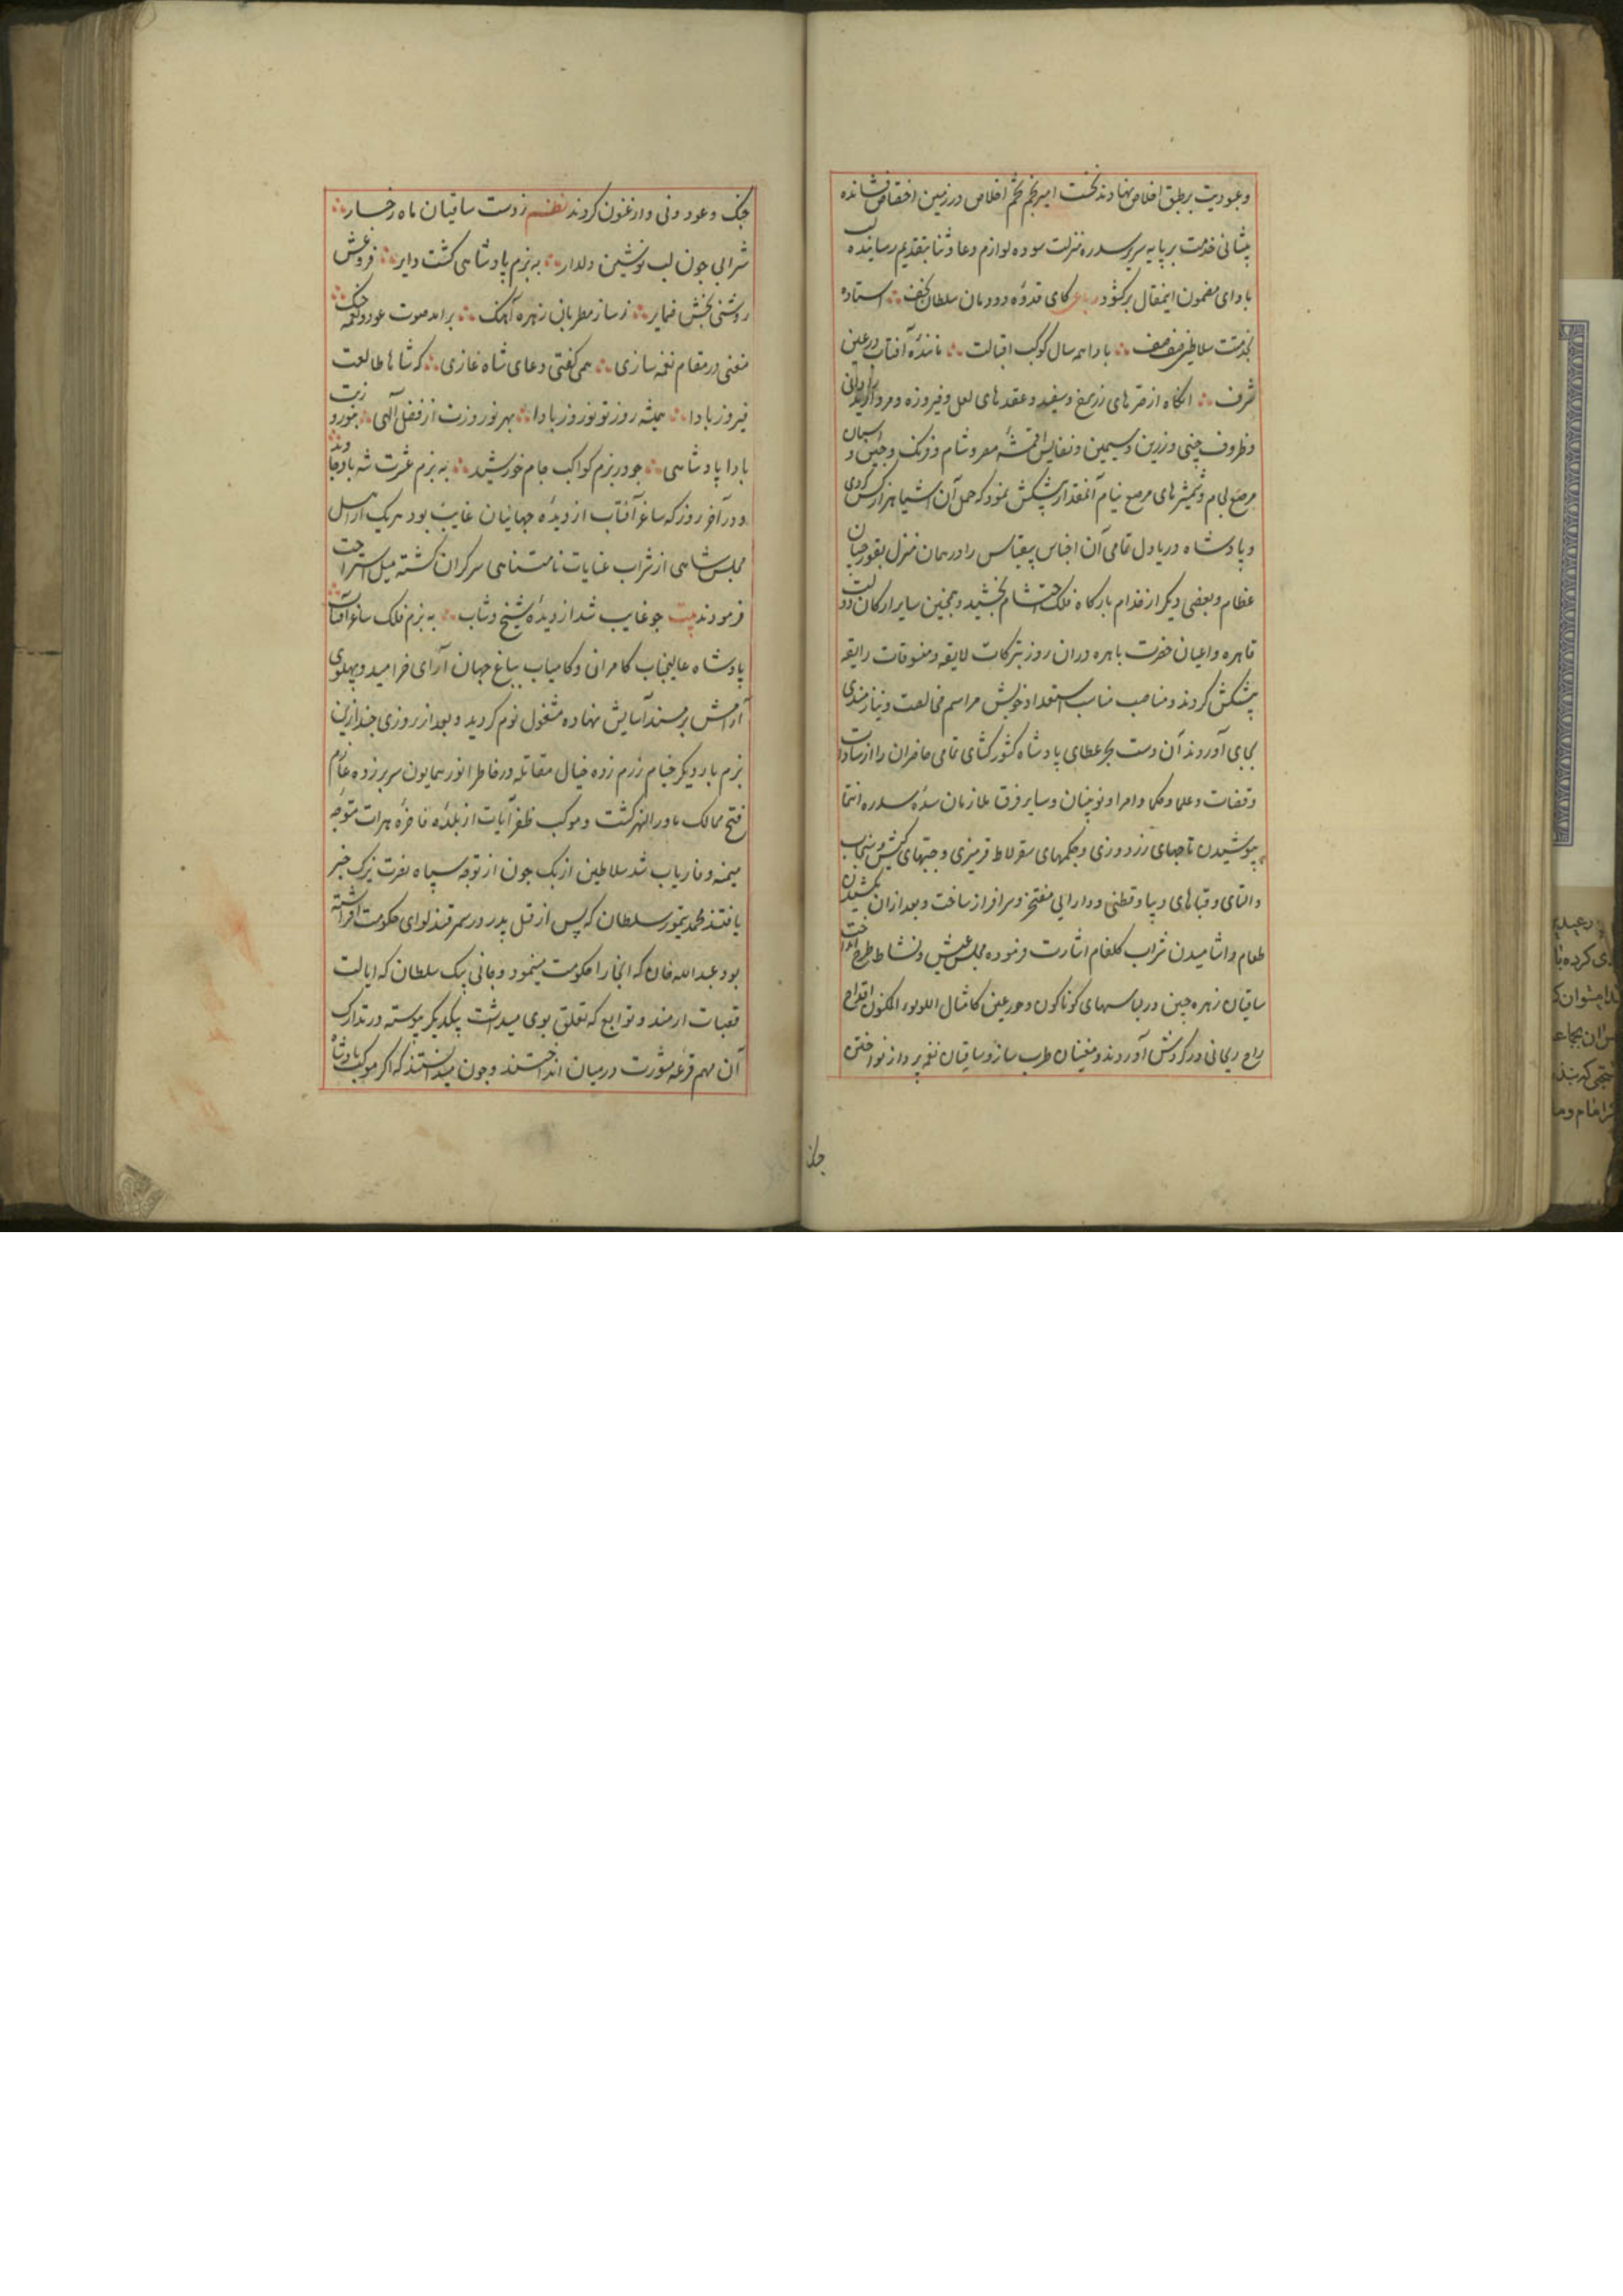 و عبودیت بر طبق اخلاص نهادند نخست امیر نجم تخم اخلاص در زمین اختصاص نشانده
پیشانی خدمت بر پایه سریر سدره منزلت سوده لوازم دعا و ثنا بتقدیم رسانیده لب
بادای مضمون اینمقال برکشود رباعی کای قدوهٔ دودمان سلطان نجف استاده
بخدمتت سلاطین صف صف بادا همه سال کوکب اقبالت مانندهٔ آفتاب در عین
شرف انکاه از صرهای زر سرخ و سفید و عقدهای لعل و فیروزه و مروارید
و ظروف چینی و زرین و سیمین و نفایس اقمشهٔ مصر و شام و فرنک و چین و اسبان
مرصع لجام و شمشیرهای مرصع نیام آنمقدار پیشکش نمود که حمل آن اشیا هزار کس کردی
و پادشاه دریادل تمامی آن اجناس بیقیاس را در همان منزل بقورچیان
عظام و بعضی دیکر از خدام بارکاه فلک احتشام بخشید و همچنین سایر ارکان دولت
قاهره و اعیان حضرت باهره دران روز تبرکات لایقه و تنسوقات رایقه
پیشکش کردند و مناصب مناسب استعداد خویش مراسم و نیازمندی
بجای آوردند آن دست بحر عطای پادشاه کشورکشای تمامی حاضران را از سادات
و قضات و علما و حکما و امرا و نویینان و سایر فرق ملازمان سدهٔ سدره انتما
بپوشیدن تاجهای زردوزی و چکمهای سقرلاط قرمزی و جبتهای کیش و سنجاب
و التای و قباهای دیبا و قطنی و دارایی مفتخر و سرافراز ساخت و بعد ازان بکشیدن
طعام و اشامیدن شراب کلفام اشارت فرموده مجلس عیش و نشاط طرح انداخت
ساقیان زهره جبین در لباسهای کوناکون و حور عین کامثال اللولوء المکنون اقداح
راح ریحانی در کردش آوردند و مغنیان طرب ساز و ساقیان نغمه پرداز نواختن
چنک و عود و نی و ارغنون کردند نظم ز دست ساقیان ماه رخسار
شرابی چون لب نوشین دلدار به بزم پادشاهی کشت دایر فروغش
روشنی بخش ضمایر ز ساز مطربان زهره آهنک برامد صوت عود و نغمه چنک
مغنی در مقام نغمه سازی همی کفتی دعای شاه غازی که شاها طالعت
فیروز بادا همیشه روز تو نوروز بادا بهر نوروزت از فضل آلهی
بادا پادشاهی چو در بزم کواکب جام خورشید به بزم عشرت شه باد جاوید
و در آخر روز که ساغر آفتاب از دیدهٔ جهانیان غایب بود هر یک از اهل
مجلس شاهی از شراب عنایات نامتناهی سرکران کشته میل استراحت
فرمودند بیت چو غایب شد از دیدهٔ شیخ و شاب به بزم فلک ساغر آفتاب
پادشاه عالیجناب کامران و کامیاب بباغ جهان آرای خرامید و پهلوی
آرامش بر مسند آسایش نهاده مشغول نوم کردید و بعد از روزی چند ازین
بزم بار دیکر خیام رزم زده خیال مقاتله در خاطر انور همایون سر بر زده عازم
فتح ممالک ماورالنهر کشت و موکب ظفر آیات از بلدهٔ فاخرهٔ هرات متوجه
میمنه و فاریاب شد سلاطین ازبک چون از توجه سپاه نصرت یزک خبر
یافتند محمد تیمور سلطان که پس از قتل پدر در سمرقند لوای حکومت افراشته
بود عبدالله خان که بخارا حکومت مینمود و جانی بیک سلطان که ایالت
قصبات و توابع که تعلق بوی میداشت بیکدیکر پیوسته در تدارک
آن مهم قرعه مشورت در میان انداختند و چون میدانستند که اکر موکب پادشاه